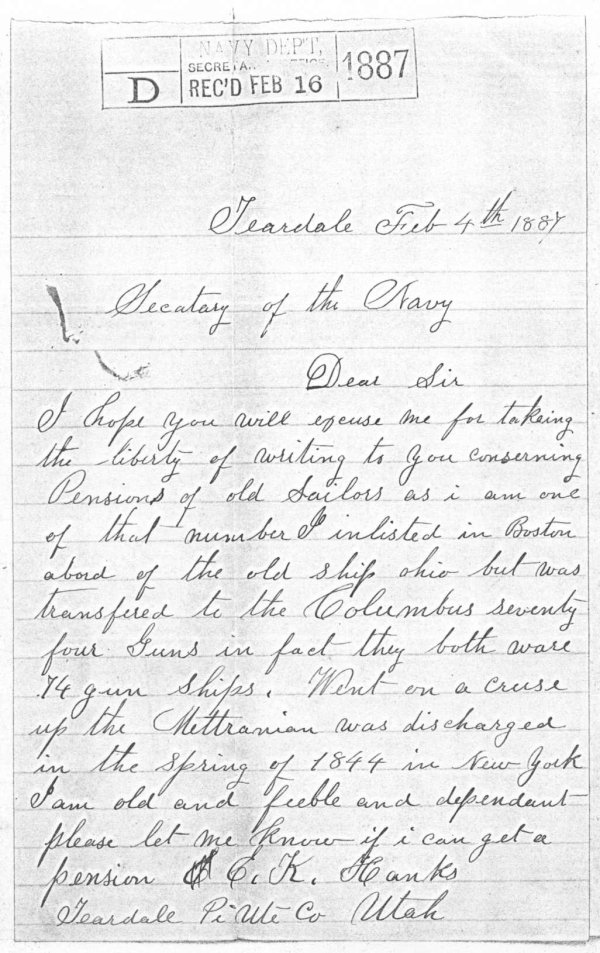 NAVY DEPT,
SECRETARY'S OFFICE,
D
REC'D FEB 16
1887
Teardale Feb 4th 1887
Secatary of the Navy
Dear Sir
I hope you will excuse me for takeing
the liberty of writing to you conserning
Pensions of old Sailors as i am one
of that number I inlisted in Boston
abord of the old ship ohio but was
transfered to the Columbus seventy
four Guns in fact they both ware
74 gun ships. Went on a cruse
up the Mettranian was discharged
in the spring of 1844 in New York
I am old and feeble and dependant
please let me know if i can get a
pension E. K. Hanks
Teardale Pi Ute Co Utah